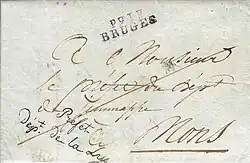 P91P
BRUGES
A Monsieur
le préfet du dépt
de Jemmappe
Mons
Préfet
Dépt de la Lys